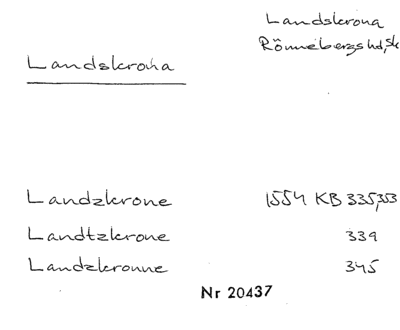 Landskrona
Rönnebergs hd, Sk
Landskrona
Landzkrone 1554 KB 335, 353
Landtzkrone 339
Landzkronne 345
Nr 20437